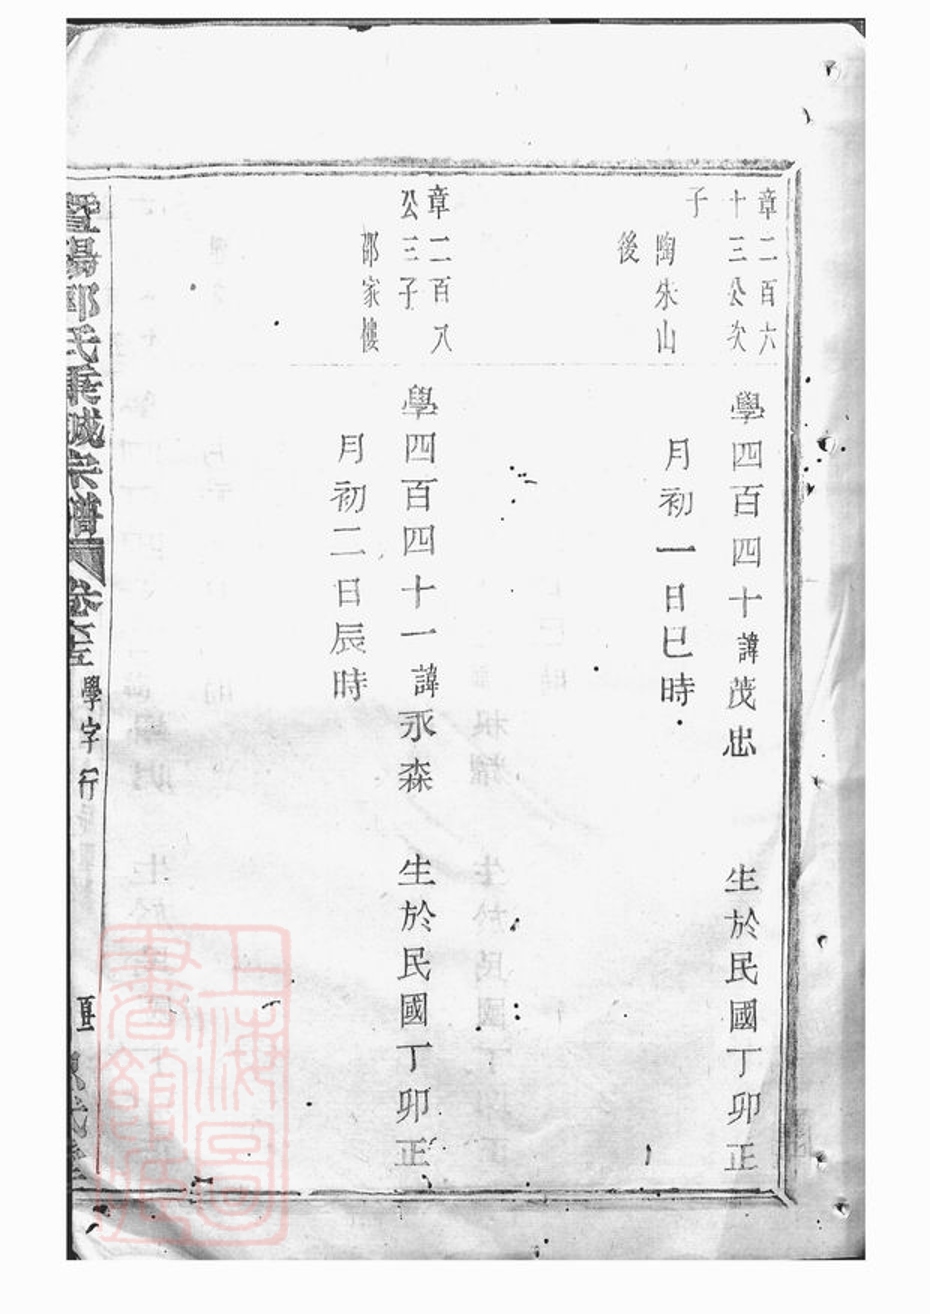 章二百六
十三公次
子
陶朱山
後
學四百四十諱茂忠
生於民國丁卯正
月初一日巳時
章二百八
公三子
邵家樓
學四百四十一諱永森
生於民國丁卯正
月初二日辰時
暨陽邱氏秉誠宗譜
學字行
上海圖
書館藏